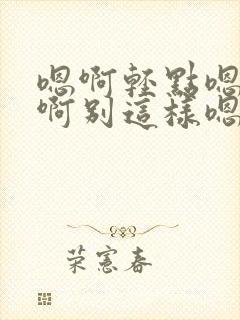 嗯啊輕點嗯
啊別這樣嗯
荣憲春